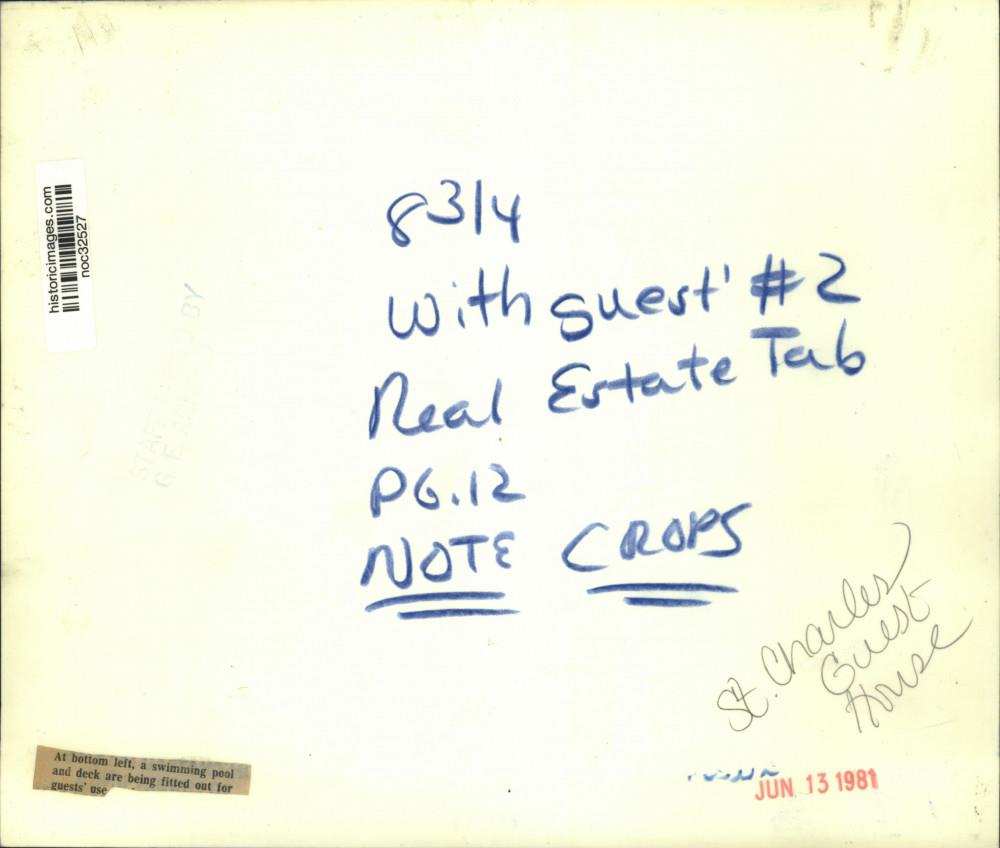 historicimages.com
noc32527
8 3/4
With guest' #2
Real Estate Tab
PG.12
NOTE CROPS
St. Charles
Guest
House
At bottom left, a swimming pool
and deck are being fitted out for
guests' use
JUN 13 1981